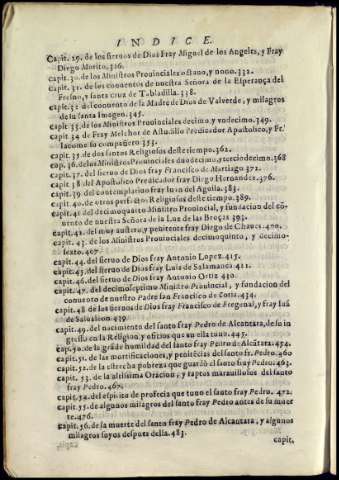 INDICE.
Capit. 29. de los sieruos de Dios Fray Miguel de los Angeles, y Fray
Diego Morito. 326.
capit. 30. de los Ministros Prouinciales octauo, y nono. 332.
capit. 31. de los conuentos de nuestra Señora de la Esperança del
Fresno, y santa cruz de Tabladilla. 338.
capit. 32 del conuento de la Madre de Dios de Valverde, y milagros
de su santa Imagen. 345.
capit. 33. de los Ministros Prouinciales decimo y vndecimo. 349.
capit. 34 de Fray Melchor de Astudillo Predicador Apostolico, y Fr.
Iacome su compañero 353.
capit. 35 de dos santos Religiosos deste tiempo. 362.
cap. 36. de los Ministros Prouinciales duodecimo, y terciodecimo. 368
capit. 37. del sieruo de Dios fray Francisco de Martiago 372.
capit. 38 del Apostolico Predicador fray Diego Hernandez. 376.
capit. 39 del contemplatiuo fray Iuan del Aguila. 383.
capit. 40. de otros perfectos Religiosos deste tiempo. 389.
capit. 41 del decimoquarto Ministro Prouincial, y fundacion del cō-
uento de nuestra Señora de la Luz de las Broças 393.
capit. 42. del muy austero, y penitente fray Diego de Chaues. 400.
capit. 43. de los Ministros Prouinciales decimoquinto, y decimo-
sexto. 407.
capit. 44. del sieruo de Dios fray Antonio Lopez 415.
capit. 45. del sieruo de Dios fray Luis de Salamanca 421.
capit. 46. del sieruo de Dios fray Antonio Ortiz 430.
capit. 47. del decimoseptimo Ministro Prouincial, y fundacion del
conuento de nuestro Padre san Francisco de Coria. 434.
capit. 48 de los sieruos de Dios fray Francisco de Fregenal, y fray Iuā
de Salualeon 439.
capit. 49. del nacimiento del santo fray Pedro de Alcantara, de su in
gresso en la Religion, y oficios que en ella tuuo. 445.
capit. 50. de la grāde humildad del santo fray Pedro de Alcātara. 454.
capit. 51. de las mortificaciones, y penitēcias del santo fr. Pedro 460
capit. 52. de la estrecha pobreza que guardò el santo fray Pedro. 463.
capit. 53. de la altissima Oracion, y raptos marauillosos del santo
fray Pedro. 467.
capit. 54. del espiritu de profecia que tuuo el santo fray Pedro. 472.
capit. 55. de algunos milagros del santo fray Pedro antes de su muer
te. 476.
capit. 56. de la muerte del santo fray Pedro de Alcantara, y algunos
milagros suyos despues della. 483.
capit.